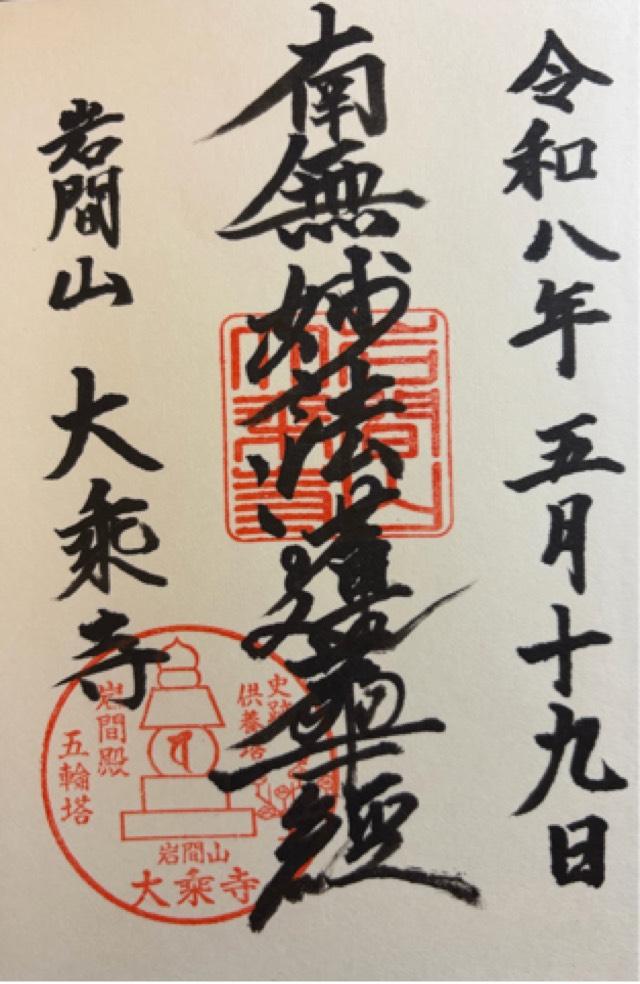 令和八年 五月十九日
南無妙法蓮華経
岩間山 大乘寺
岩間山
大乘寺
史跡
供養塔
岩間殿
五輪塔
岩間山
大乘寺